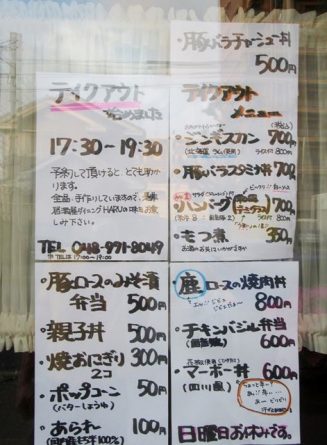 ・豚バラチャーシュー丼
500円
テイクアウト
始めました
17:30〜19:30
予約して頂けると、とても助
かります。
全品、手作りしていますので、
居酒屋ダイニングHARUの味をお楽
しみ下さい。
TEL 048-971-8049
テイクアウト
メニュー
(税込)
・ジンギスカン 700円
ライス付 800円
・豚バラスタミナ丼 700円
・ハンバーグ 700円
ライス付 800円
・もつ煮 350円
お酒のお供にいかがですか
・豚ロースのみそ漬
弁当 500円
・親子丼 500円
・焼おにぎり 300円
2コ
・ポップコーン 50円
(バターしょうゆ)
・あられ 100円
(国内産もち米100%)
・鹿ロースの焼肉丼
800円
・チキンバジル弁当
600円
・マーボー丼 600円
(四川風)
日曜日お休みです。